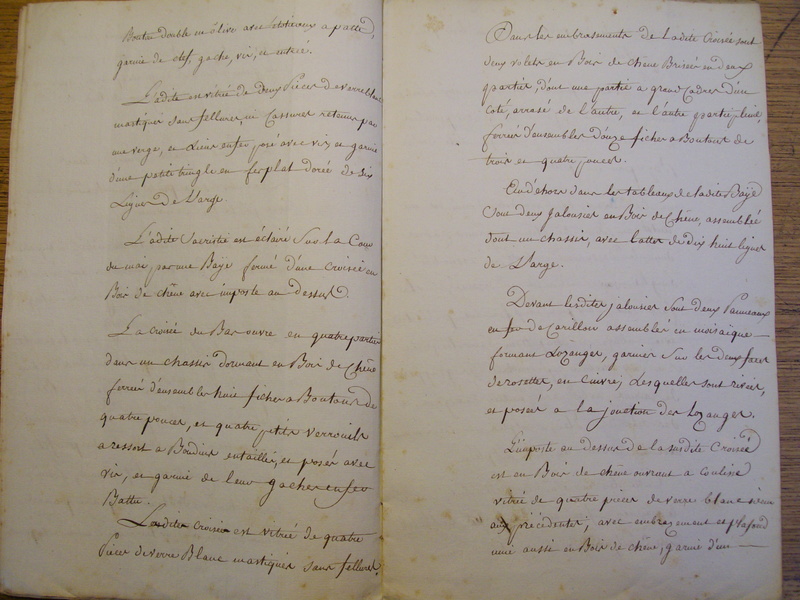 Bouton double en olive avec
garnie de clef, gache, vis, et entrée.
Ladite est vitrée de Deux Pieces de verre blanc
mastiqué sans fellures ni Cassures retenus par
une verge, et Liens en fer, posé avec vis, et garnie
d'une petite tringle en fer plat dorée de six
Lignes De Large.
Ladite Sacristie est éclairé sur La Cour
du mai, par une Baye fermé d'une Croisée en
Bois de chêne avec imposte au dessus.
La croisée du Bas ouvre en quatre parties
dans un chassis dormant en Bois de Chêne
ferrée d'ensemble huit fiches a Boutons de
quatre pouces, et quatre petits verrouils
a ressort a Boudins entaillés, et posés avec
vis, et garnie de leurs gaches en fer
Battu.
Ladite Croisée est vitrée de quatre
Pieces de verre Blanc mastiqués sans fellures,
Dans les embrasements de Ladite Croisée sont
deux volets en Bois de chêne Brisés en deux
parties, d'ont une partie a grand Cadres d'un
coté, arrasé de L'autre, et L'autre partie
ferrés d'ensembles Douze fiches a Boutons de
trois et quatre pouces.
En dehors dans les tableaux de Ladite Baÿe
sont deux Jalousies en Bois de Chêne, assemblée
dont un chassis, avec Lattes de dix huit lignes
de Large.
Devant Lesdites jalousies sont deux Panneaux
en fer de Carillon assemblés en mosaique
formant Lozanges, garnies sur les deux faces
de rosettes, en Cuivre, Lesquelles sont rivées,
et posées a la jonction des Lozanges.
L'imposte au dessus de la susdite Croisée
est en Bois de chêne ouvrant a coulisse
vitrée de quatre pieces de verre blanc
aux précédentes, avec embrazement et plafond
uni aussi en Bois de chêne, garnie d'un